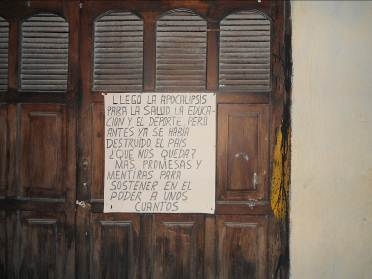 LLEGO LA APOCALIPSIS
PARA LA SALUD LA EDUCA-
CION Y EL DEPORTE PERO
ANTES YA SE HABIA
DESTRUIDO EL PAIS
¿QUE NOS QUEDA?
MAS PROMESAS Y
MENTIRAS PARA
SOSTENER EN EL
PODER A UNOS
CUANTOS